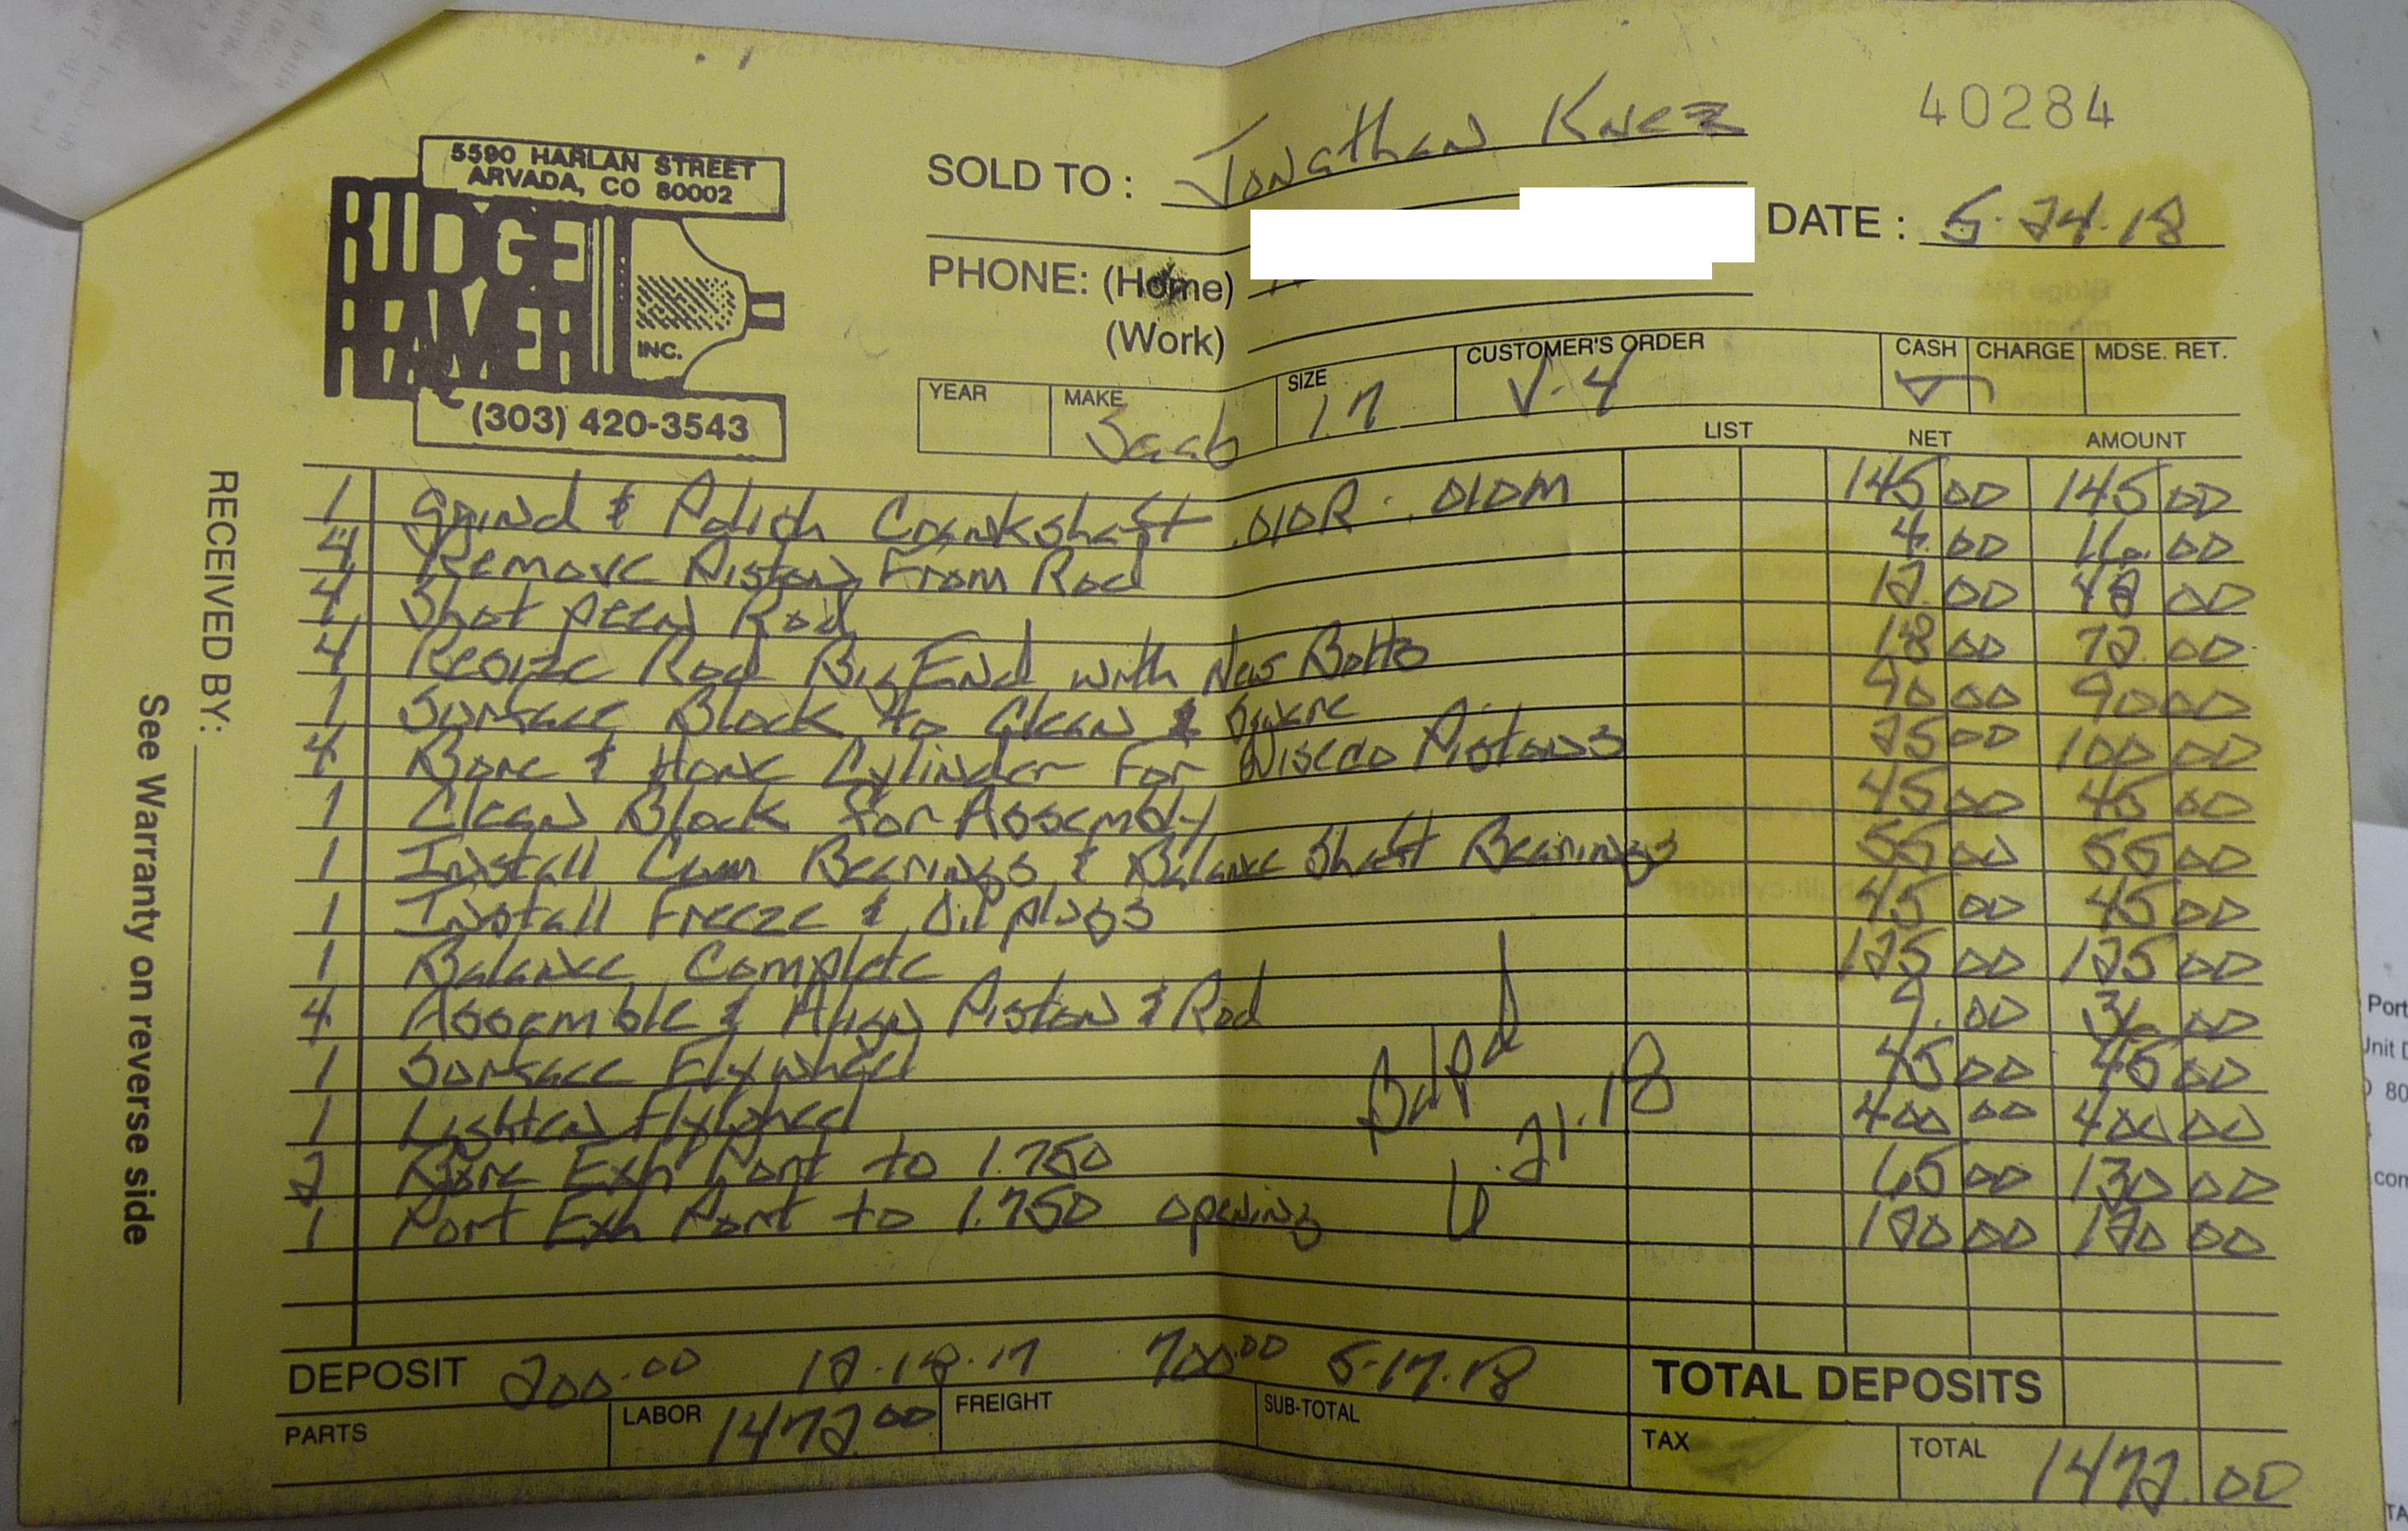 40284
5590 HARLAN STREET
ARVADA, CO 80002
RIDGE
REAMER
INC.
(303) 420-3543
SOLD TO : Jonathan Knez
DATE : 5-24-18
PHONE: (Home)
(Work)
YEAR MAKE Saab SIZE 1.7 CUSTOMER'S ORDER V-4 CASH CHARGE MDSE. RET.
LIST NET AMOUNT
1 Grind & Polish Crankshaft .010R - .010M 145 00 145 00
4 Remove Piston From Rod 4.00 16.00
4 Shot peen Rod 12.00 48 00
4 Resize Rod Big End with New Bolts 18 00 72.00
1 Surface Block to Clean & Square 90 00 90 00
4 Bore & Hone Cylinder For Wiseco Pistons 25 00 100 00
1 Clean Block for Assembly 45 00 45 00
1 Install Cam Bearings & Balance Shaft Bearings 55 00 55 00
1 Install Freeze & Oil plugs 45 00 45 00
1 Balance Complete 125 00 125 00
4 Assemble & Align Piston & Rod 9.00 36.00
1 Surface Flywheel 45 00 45 00
1 Lighten Flywheel 400 00 400 00
2 Bore Exh Port to 1.750 65 00 130 00
1 Port Exh Port to 1.750 opening 120 00 120 00
Bal Pd
6.21.18
DEPOSIT 200.00 12-18-17 700.00 5-17-18 TOTAL DEPOSITS
PARTS LABOR 1472.00 FREIGHT SUB-TOTAL TAX TOTAL 1472.00
RECEIVED BY:
See Warranty on reverse side
Port
Unit D
80
.com